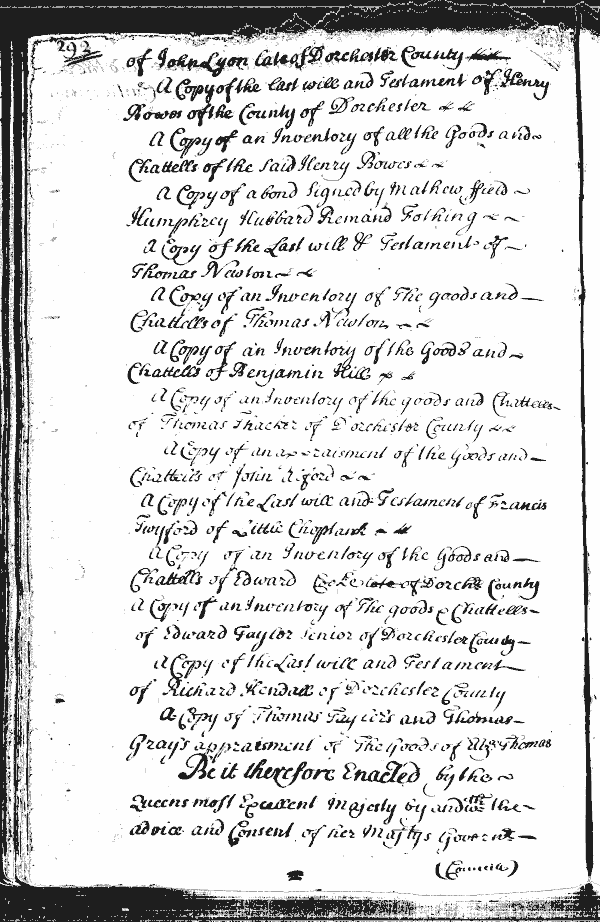 292
of John Lyon late of Dorchester County
A Copy of the last will and Testament of Henry
Bowes of the County of Dorchester
A Copy of an Inventory of all the Goods and
Chattells of the Said Henry Bowes
A Copy of a bond Signed by Mathew ffield
Humphrey Hubbard
A Copy of the Last will & Testament of
Thomas Newton
A Copy of an Inventory of The goods and
Chattells of Thomas Newton
A Copy of an Inventory of the Goods and
Chattells of Benjamin Hill
A Copy of an Inventory of the goods and Chattells
of Thomas Thacker of Dorchester County
A Copy of an of the Goods and
Chattells of John
A Copy of the Last will and Testament of Francis
Twyford of Little Choptank
A Copy of an Inventory of the Goods and
Chattells of Edward Cooke late of Dorchr County
A Copy of an Inventory of The goods & Chattells
of Edward Taylor Senior of Dorchester County
A Copy of the Last will and Testament
of Richard Kendall of Dorchester County
A Copy of Thomas and Thomas
Gray's appraisment of The Goods of Thomas
Be it therefore Enacted by the
Queens most Excellent Majesty by and with the
advice and Consent of her Majtys Governr
(Councill)